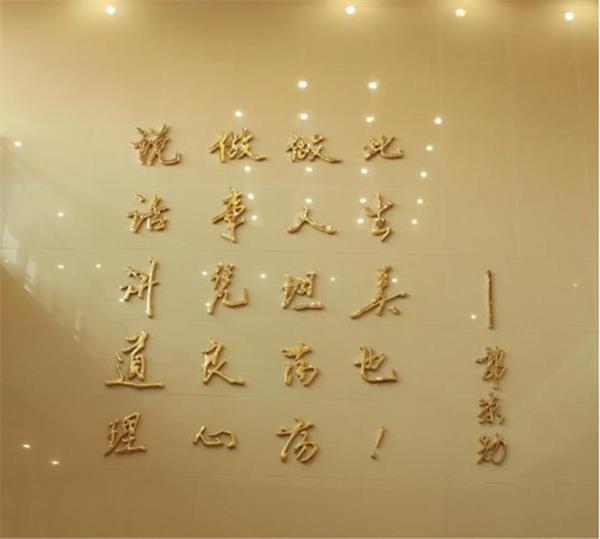 说话讲道理
做事凭良心
做人坦荡荡
此生美也！
—郭